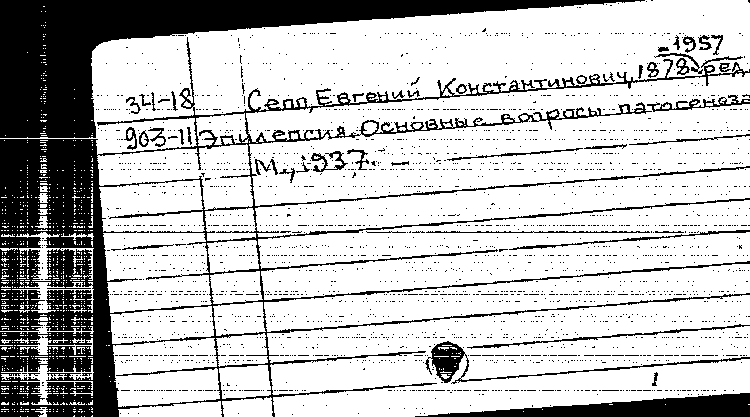 -1957
34-18 Сепп, Евгений Константинович, 1878- ред.
903-11 Эпилепсия. Основные вопросы патогенеза
М., 1937. —
1